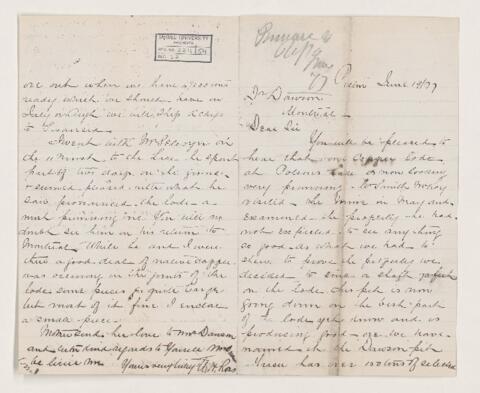 McGILL UNIVERSITY
ARCHIVES
ACC. NO.
REF.
Pictou June 19/77
Dr Dawson
Montreal
Dear Sir
You will be pleased to
hear that our Copper Lode
at Polsons Lake is now looking
very promising
visited the mine in May and
examined the property he had
not expected to see anything
so good as what we had to
shew to prove the property we
decided to sink a shaft
on the Lode this pit is now
going down on the best part
of the lode yet know and is
producing good ore we have
named it the Dawson pit
has over tons of selected
ore out when we have
ready which we should have in
July or Augt we will ship
to Swansea
I went with Mr Selwyn on
the to the Lake he spent
part of two days on the ground
& seemed pleased with what he
saw pronounced the lode a
most promising one You will no
doubt see him on his return to
Montreal While he and I were
there a good deal of native copper
was occurring in the joints of the
lode some pieces quite large
but most of it fine I enclose
a small piece
sends her love to Mrs Dawson
and with kind regards to yourself
believe me Yours very truly